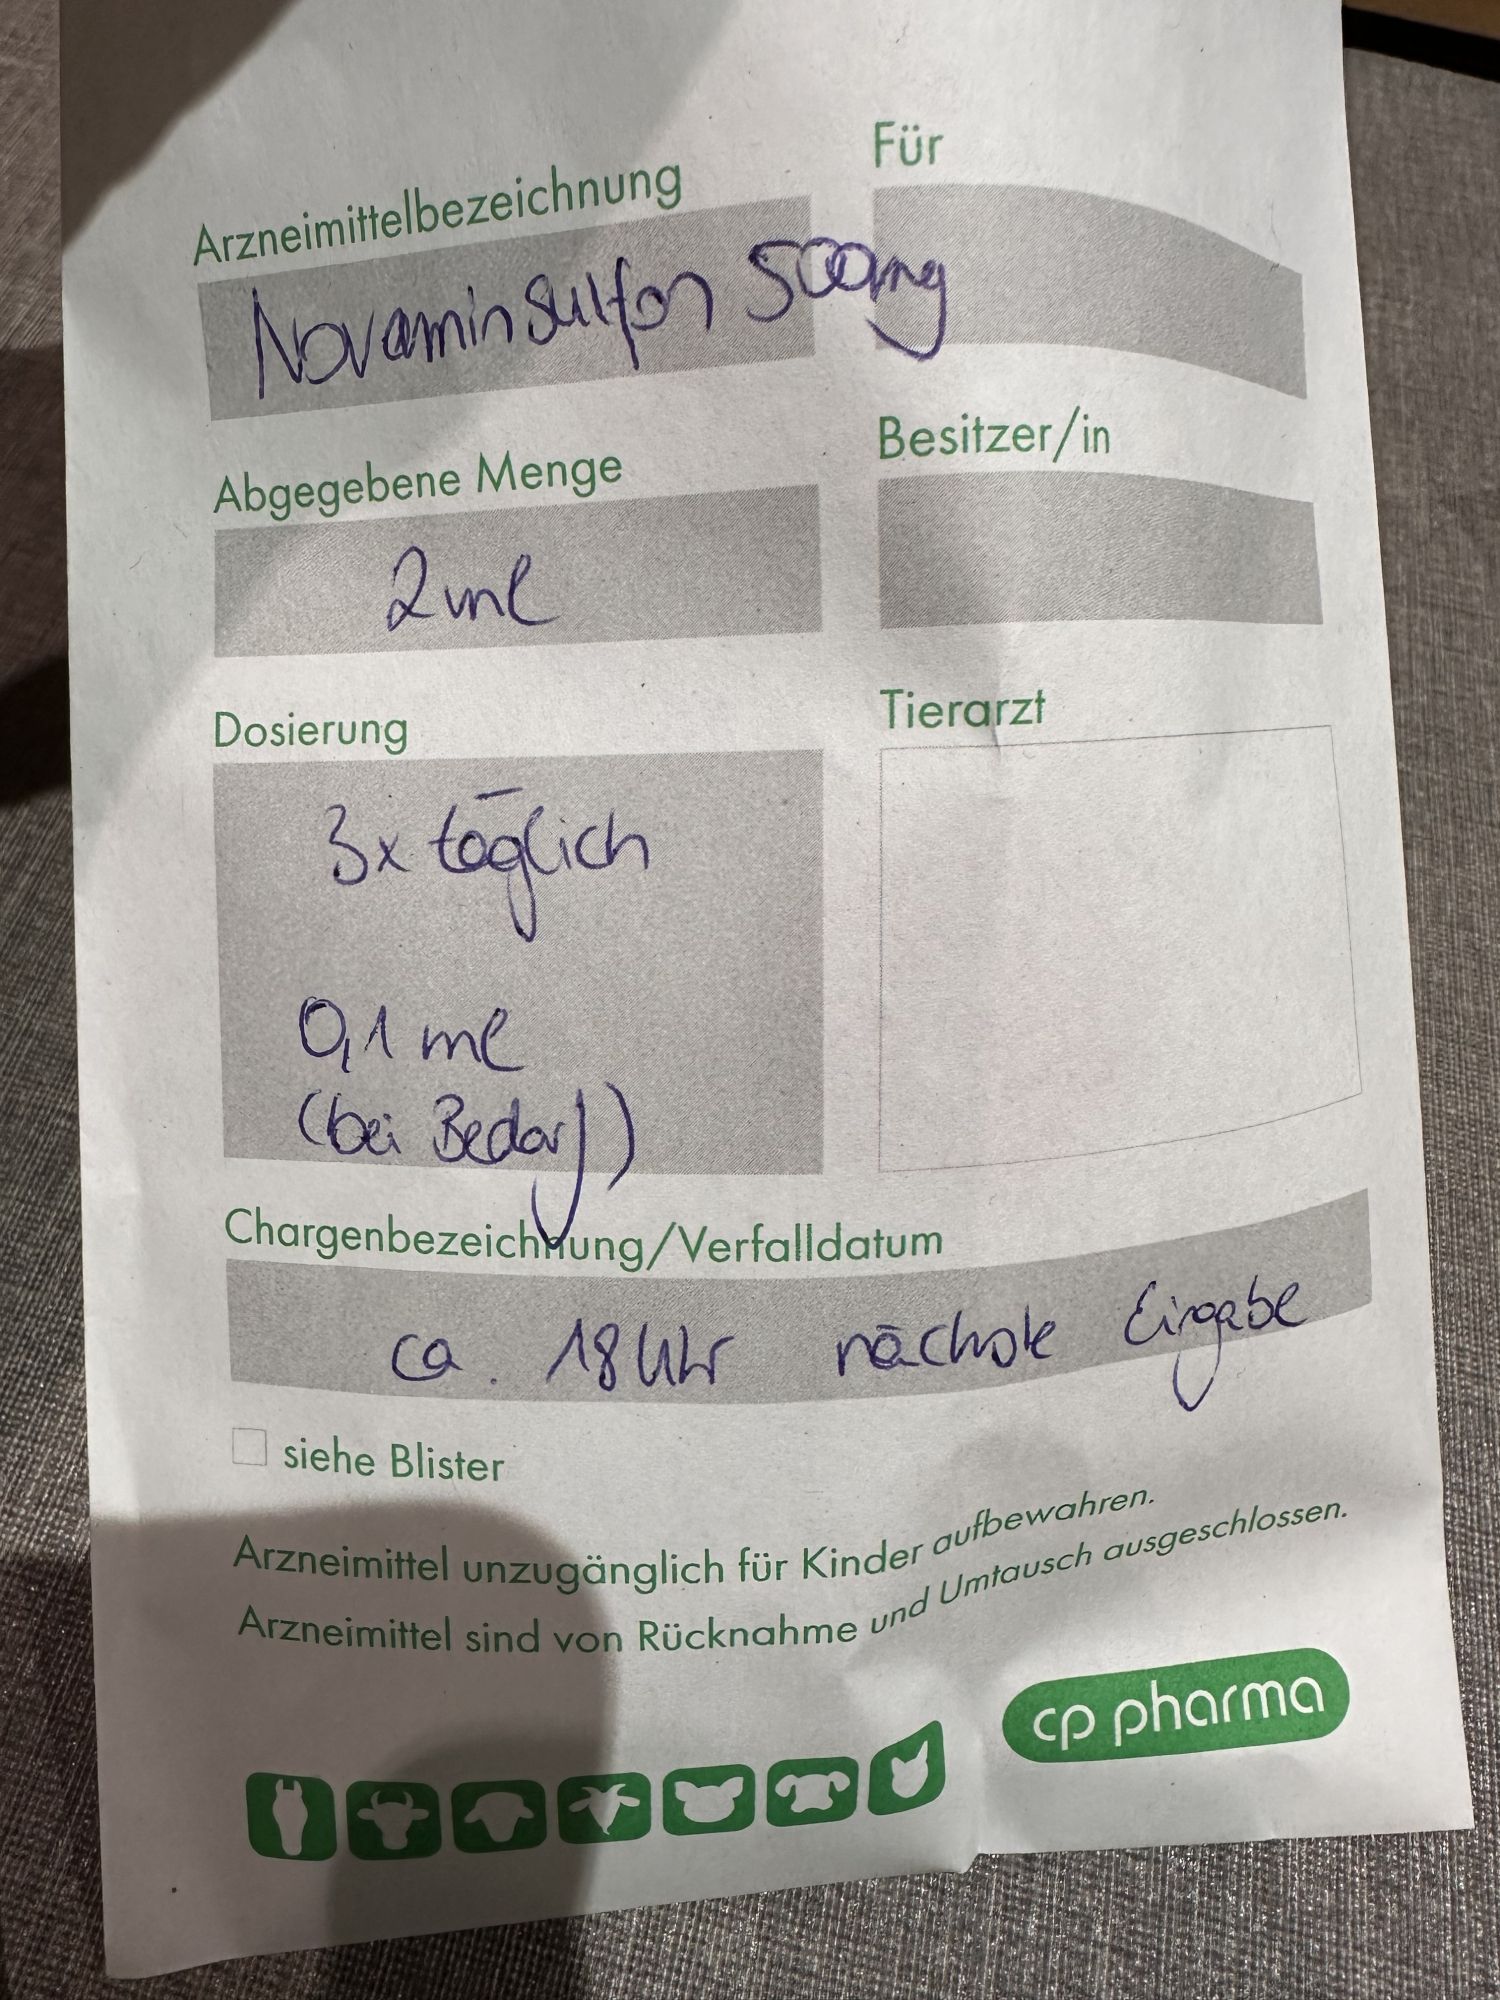 Arzneimittelbezeichnung
Novaminsulfon 500mg
Für
Abgegebene Menge
2ml
Besitzer/in
Dosierung
3x täglich
0,1 ml
(bei Bedarf)
Tierarzt
Chargenbezeichnung/Verfalldatum
ca. 18 Uhr nächste Eingabe
siehe Blister
Arzneimittel unzugänglich für Kinder aufbewahren.
Arzneimittel sind von Rücknahme und Umtausch ausgeschlossen.
cp pharma